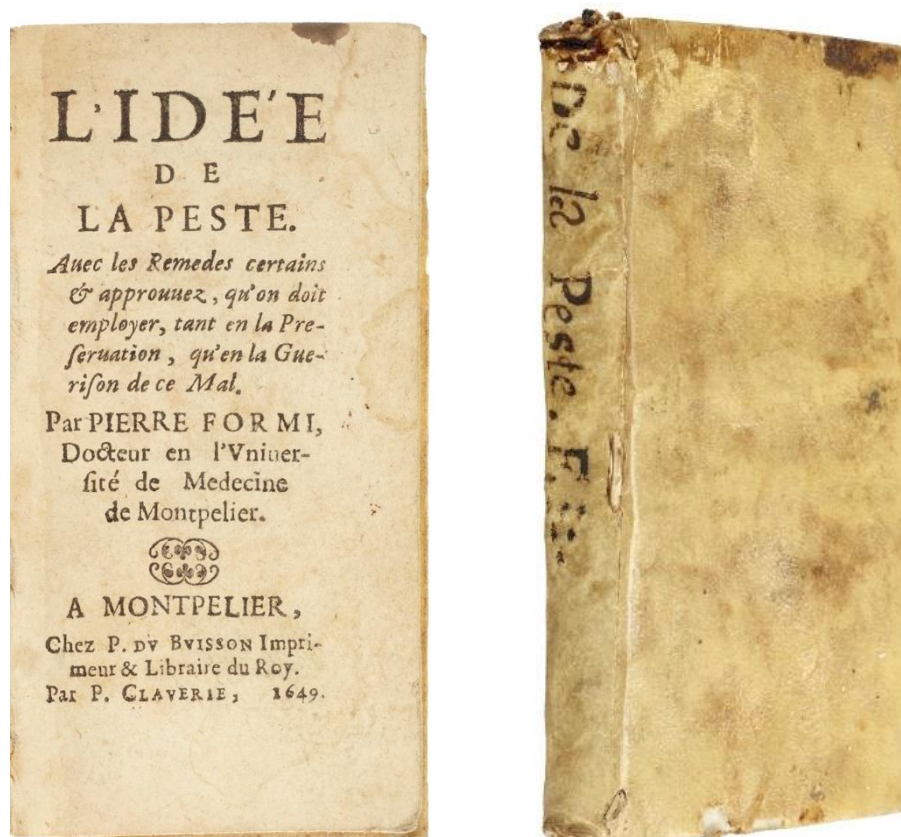 L'IDE'E
DE
LA PESTE.
Auec les Remedes certains
& approuuez, qu'on doit
employer, tant en la Pre-
ſeruation, qu'en la Gue-
riſon de ce Mal.
Par PIERRE FORMI,
Docteur en l'Vniuer-
ſité de Medecine
de Montpelier.
A MONTPELIER,
Chez P. DV BVISSON Impri-
meur & Libraire du Roy.
Par P. CLAVERIE, 1649.
De la Peste.